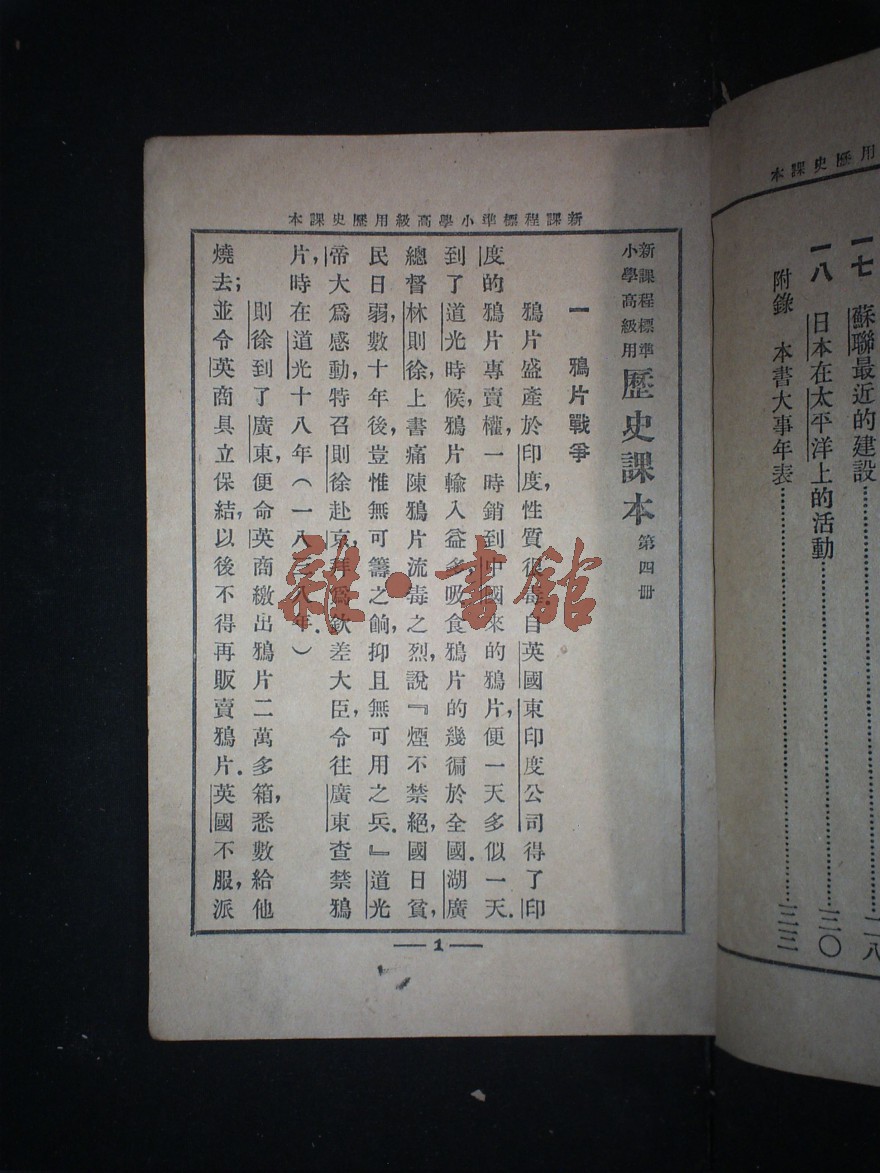 本課史歷用
一七 蘇聯最近的建設……二八
一八 日本在太平洋上的活動……三〇
附錄 本書大事年表……三三
本課史歷用級高學小準標程課新
新課程標準
小學高級用
歷史課本 第四冊
一 鴉片戰爭
鴉片盛產於印度，性質很毒。自英國東印度公司得了印
度的鴉片專賣權，一時銷到中國來的鴉片，便一天多似一天．
到了道光時候，鴉片輸入益多，吸食鴉片的幾徧於全國．湖廣
總督林則徐，上書痛陳鴉片流毒之烈，說『煙不禁絕，國日貧，
民日弱，數十年後，豈惟無可籌之餉，抑且無可用之兵．』道光
帝大爲感動，特召則徐赴京，拜爲欽差大臣，令往廣東查禁鴉
片，時在道光十八年（一八三八年．）
則徐到了廣東，便命英商繳出鴉片二萬多箱，悉數給他
燒去；並令英商具立保結，以後不得再販賣鴉片．英國不服，派
1
雜·書館